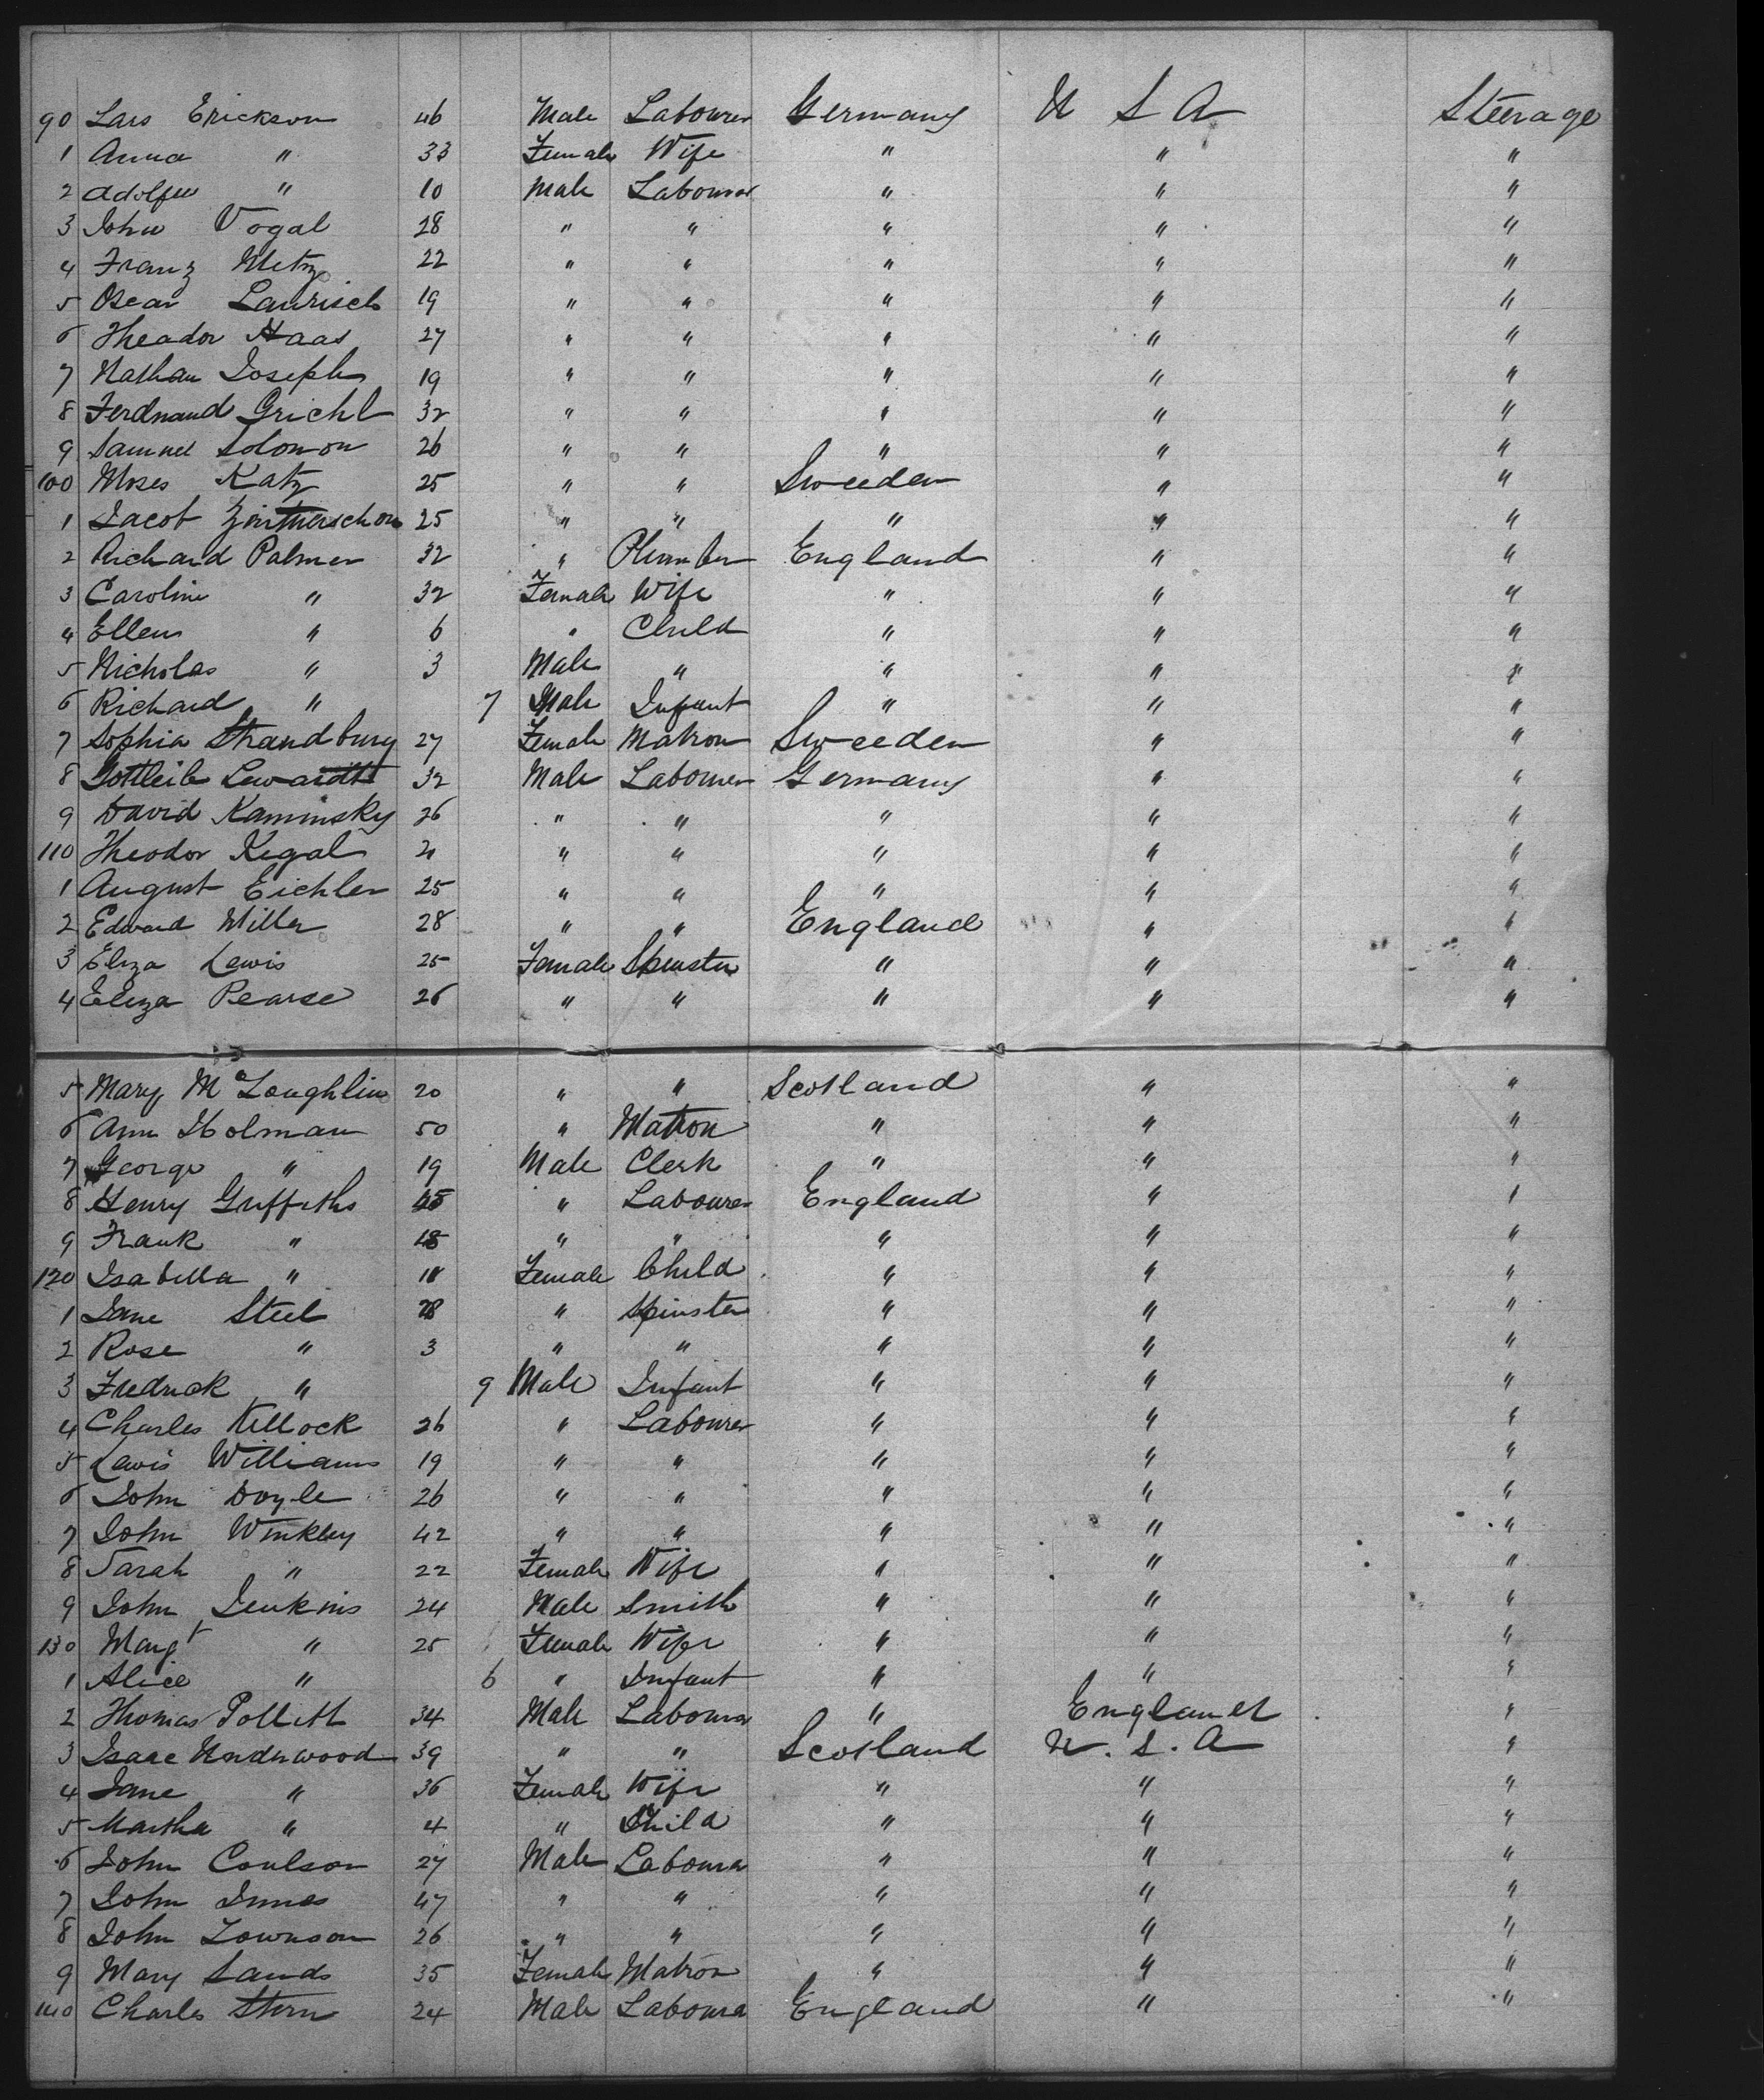 90 Lars Erickson 46 Male Labourer Germany U S A Steerage
1 Anna " 33 Female Wife " " "
2 Adolfu " 10 Male Labourer " " "
3 John Vogal 28 " " " " "
4 Franz Metz 22 " " " " "
5 Oscar Laurisch 19 " " " " "
6 Theador Haas 27 " " " " "
7 Nathan Joseph 19 " " " " "
8 Ferdnand Grichl 32 " " " " "
9 Samuel Solomon 26 " " " " "
100 Moses Katz 25 " " Sweeden " "
1 Jacob 25 " " " " "
2 Richard Palmer 32 " Plumber England " "
3 Caroline " 32 Female Wife " " "
4 Ellen " 6 " Child " " "
5 Nicholas " 3 Male " " " "
6 Richard " 7 Male Infant " " "
7 Sophia Strandbury 27 Female Matron Sweeden " "
8 Gottleib Lewardt 32 Male Labourer Germany " "
9 David Kaminsky 26 " " " " "
110 Theodor Kegal 21 " " " " "
1 August Eichler 25 " " " " "
2 Edward Miller 28 " " England " "
3 Eliza Lewis 25 Female Spinster " " "
4 Eliza Pearse 26 " " " " "
5 Mary McLoughlin 20 " " Scotland " "
6 Ann Holman 50 " Matron " " "
7 George " 19 Male Clerk " " "
8 Henry Griffiths 45 " Labourer England " "
9 Frank " 18 " " " " "
120 Isabella " 11 Female Child " " "
1 Jane Steel 28 " Spinster " " "
2 Rose " 3 " " " " "
3 Fredrick " 9 Male Infant " " "
4 Charles Killock 26 " Labourer " " "
5 Lewis Williams 19 " " " " "
6 John Doyle 26 " " " " "
7 John Winkley 42 " " " " "
8 Sarah " 22 Female Wife " " "
9 John Jenkins 24 Male Smith " " "
130 Margt " 25 Female Wife " " "
1 Alice " 6 " Infant " " "
2 Thomas Pollitt 34 Male Labourer " England "
3 Isaac Underwood 39 " " Scotland U.S.A "
4 Jane " 36 Female Wife " " "
5 Martha " 4 " Child " " "
6 John Coulson 27 Male Labourer " " "
7 John Innes 47 " " " " "
8 John Townson 26 " " " " "
9 Mary Sands 35 Female Matron " " "
140 Charles Stern 24 Male Labourer England " "